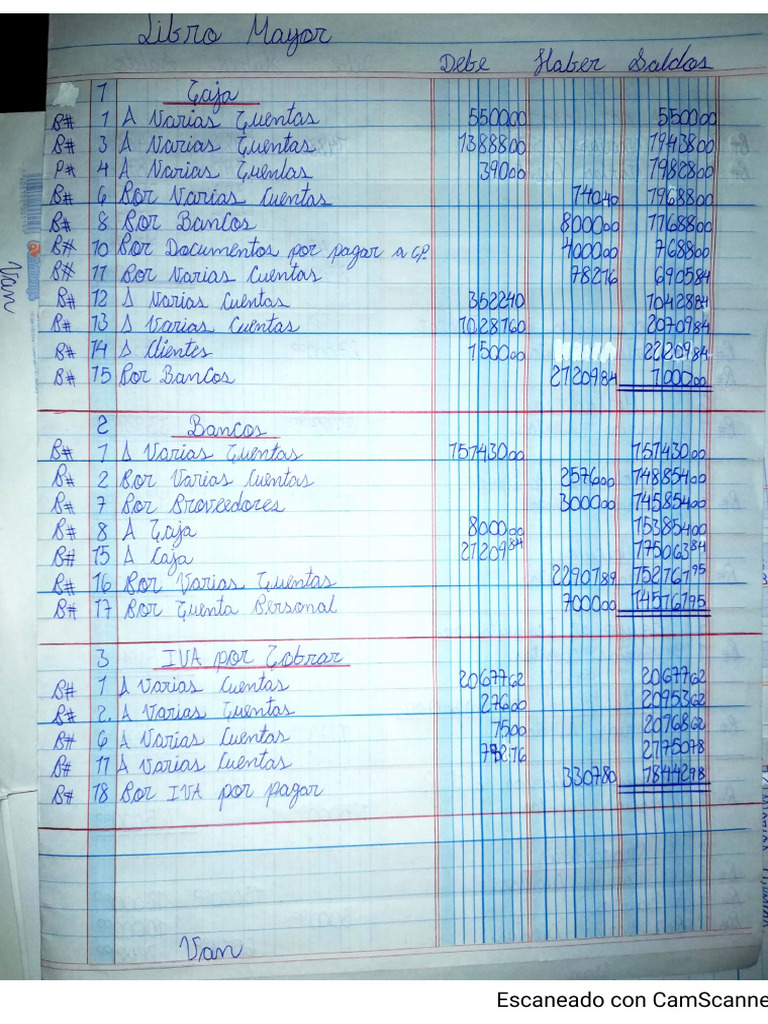 Libro Mayor
Debe Haber Saldos
1 Caja
P# 1 A Varias Cuentas 5500.00 5500.00
P# 3 A Varias Cuentas 13888.00 19438.00
P# 4 A Varias Cuentas 390.00 19828.00
P# 6 Por Varias Cuentas 140.40 19688.00
P# 8 Por Bancos 8000.00 11688.00
P# 10 Por Documentos por pagar a CP. 4000.00 7688.00
P# 11 Por Varias Cuentas 782.16 6905.84
P# 12 A Varias Cuentas 3522.40 10428.84
P# 13 A Varias Cuentas 10281.60 20709.84
P# 14 A Clientes 1500.00 22209.84
P# 15 Por Bancos 21209.84 1000.00
2 Bancos
P# 1 A Varias Cuentas 151430.00 151430.00
P# 2 Por Varias Cuentas 2576.00 148854.00
P# 7 Por Proveedores 3000.00 145854.00
P# 8 A Caja 8000.00 153854.00
P# 15 A Caja 21209.84 175063.84
P# 16 Por Varias Cuentas 22901.89 152161.95
P# 17 Por Cuenta Personal 7000.00 145161.95
3 IVA por Cobrar
P# 1 A Varias Cuentas 20677.62 20677.62
P# 2. A Varias Cuentas 276.00 20953.62
P# 6 A Varias Cuentas 15.00 20968.62
P# 11 A Varias Cuentas 782.16 21750.78
P# 18 Por IVA por pagar 3307.80 18442.98
Van
Van
Escaneado con CamScanne